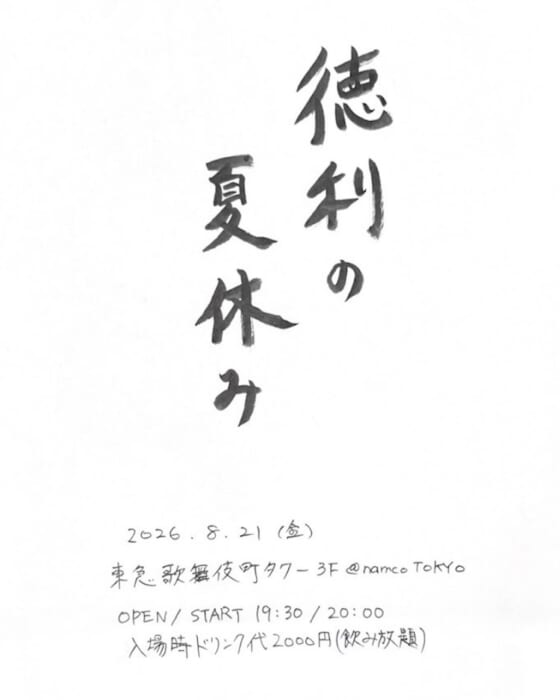 徳利の
夏休み
2026.8.21(金)
東急歌舞伎町タワー3F @namco TOKYO
OPEN/START 19:30/20:00
入場時ドリンク代2000円(飲み放題)